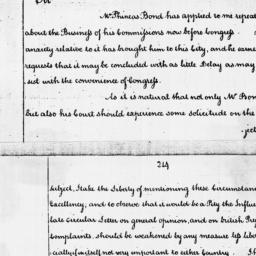 Sir
Mr. Phineas Bond has applied to me repeat
about the Business of his Commissions now before Congress.
anxiety relative to it has brought him to this City, and he earne
requests that it may be concluded with as little Delay as may
sist with the convenience of Congress.
As it is natural that not only Mr. Bon
but also his Court should experience some solicitude on the
ject
subject, I take the Liberty of mentioning these circumstan
Excellency, and to observe that it would be a Pity the Influe
late circular Letter on general opinion, and on british Pre
complaints, should be weakened by any measure less libe
cially if in itself not very important to either Country.